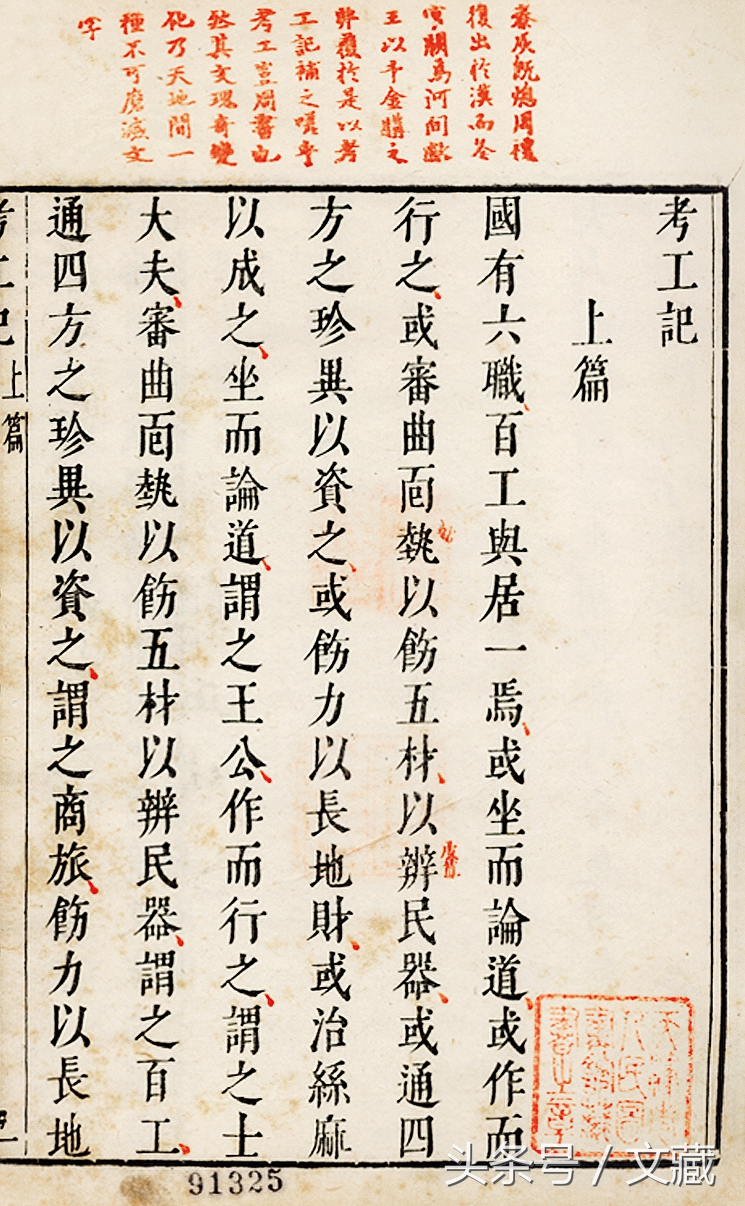 秦灰既熄周禮
復出於漢而冬
官闕焉河間獻
王以千金購之
弗獲於是以考
工記補之嗟乎
考工豈周書也
然其文瓌奇變
化乃天地間一
種不可磨滅文
字
考工記
上篇
國有六職百工與居一焉或坐而論道或作而
行之或審曲面埶以飭五材以辨民器或通四
方之珍異以資之或飭力以長地財或治絲麻
以成之坐而論道謂之王公作而行之謂之士
大夫審曲面埶以飭五材以辨民器謂之百工
通四方之珍異以資之謂之商旅飭力以長地
考工記上篇
天津市
人民圖
書館藏
書之章
91325
头条号 / 文藏